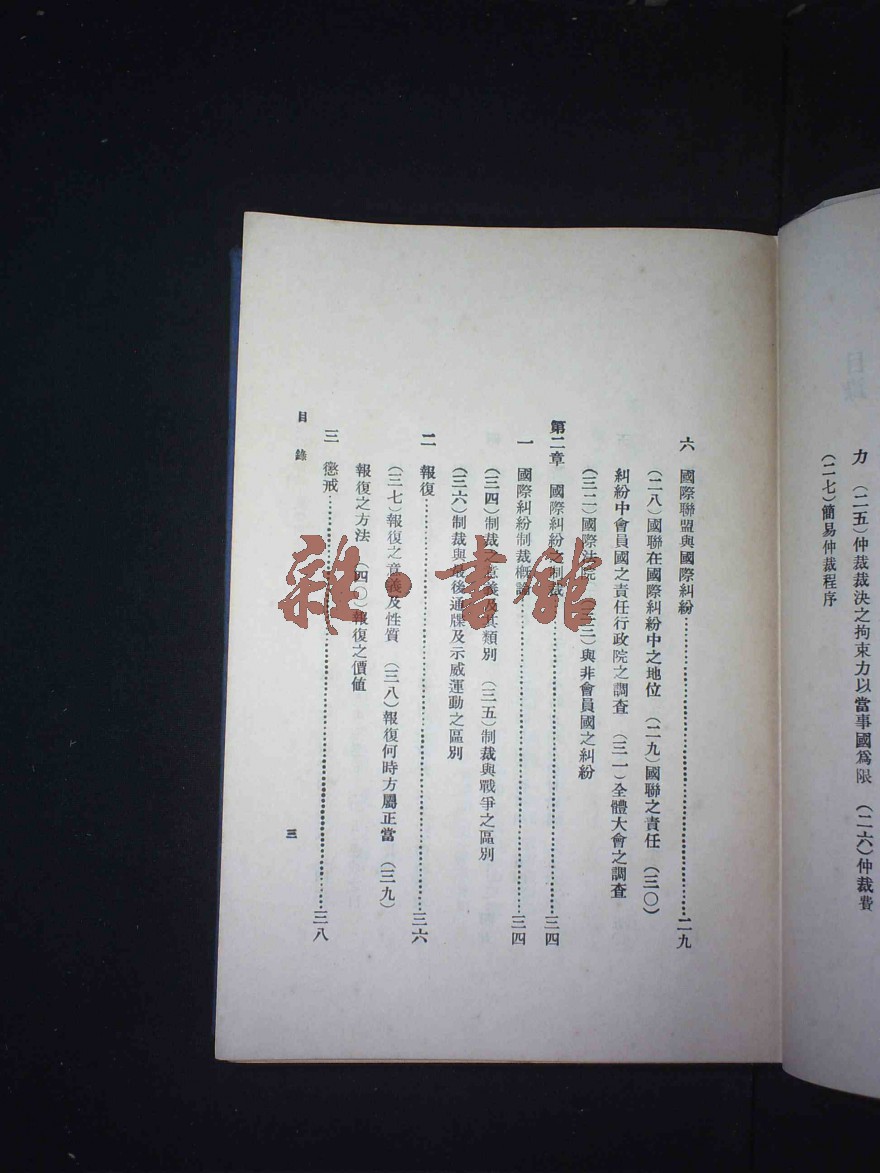 力　（二五）仲裁裁決之拘束力以當事國爲限　（二六）仲裁費
（二七）簡易仲裁程序
六　國際聯盟與國際糾紛……二九
（二八）國聯在國際糾紛中之地位　（二九）國聯之責任　（三〇）
糾紛中會員國之責任行政院之調查　（三一）全體大會之調查
（三二）國際法院　（三三）與非會員國之糾紛
第二章　國際糾紛之制裁……三四
一　國際糾紛制裁概論……三四
（三四）制裁之意義及其類別　（三五）制裁與戰爭之區別
（三六）制裁與最後通牒及示威運動之區別
二　報復……三六
（三七）報復之意義及性質　（三八）報復何時方屬正當　（三九）
報復之方法　（四〇）報復之價值
三　懲戒……三八
目錄
三
雜·書館